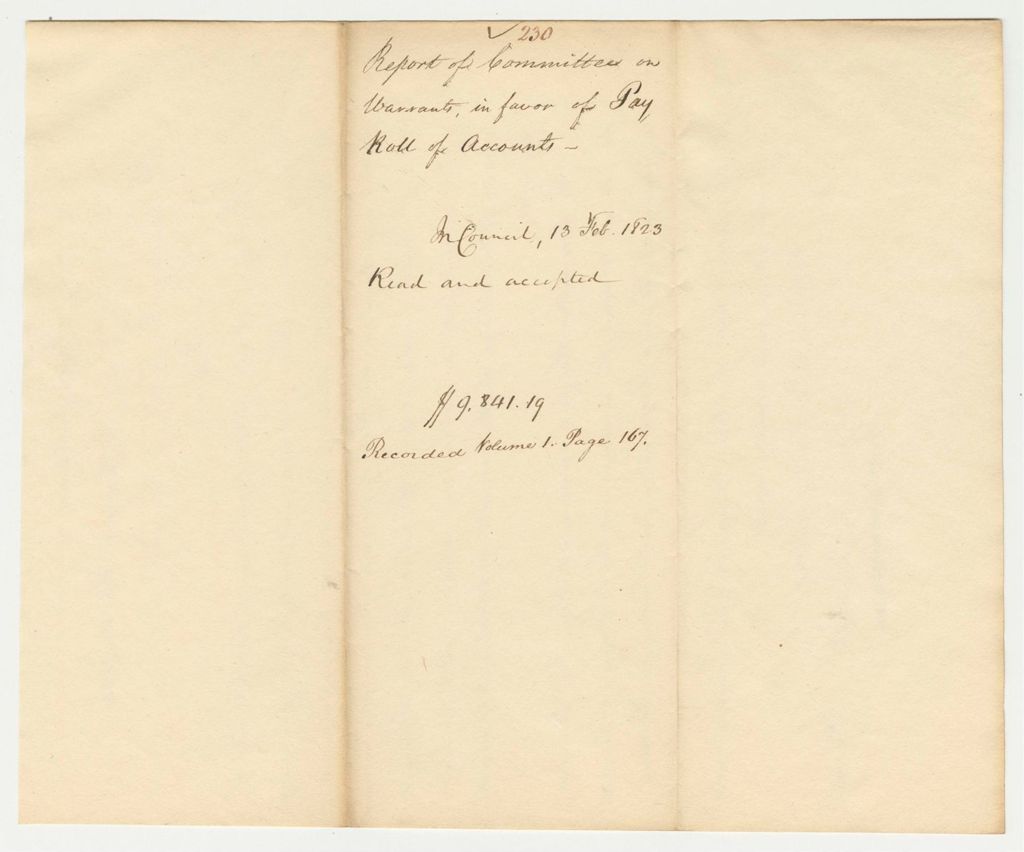 ✓ 230
Report of Committee on
Warrants, in favor of Pay
Roll of Accounts –
In Council, 13 Feb. 1823
Read and accepted
$9,841.19
Recorded Volume 1. Page 167.